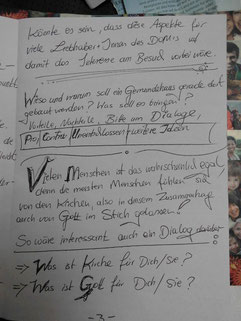 Könnte es sein, dass diese Aspekte für
viele Liebhaber*Innen des DoMus ist
damit das Interesse am Besuch vorbei wäre.
Wieso und warum soll ein Gemeindehaus gerade dort
gebaut werden? Was soll es bringen?
Vorteile, Nachteile, Bitte um Dialoge,
Pro/Contra/Unentschlossen/weitere Ideen
Vielen Menschen ist das wahrscheinlich egal
denn die meisten Menschen fühlen sich
von den Kirchen, also in diesem Zusammenhang
auch von Gott im Stich gelassen!
So wäre interessant auch ein Dialog darüber
⇒ Was ist Kirche für Dich/Sie?
⇒ Was ist Gott für Dich/Sie?
-3-